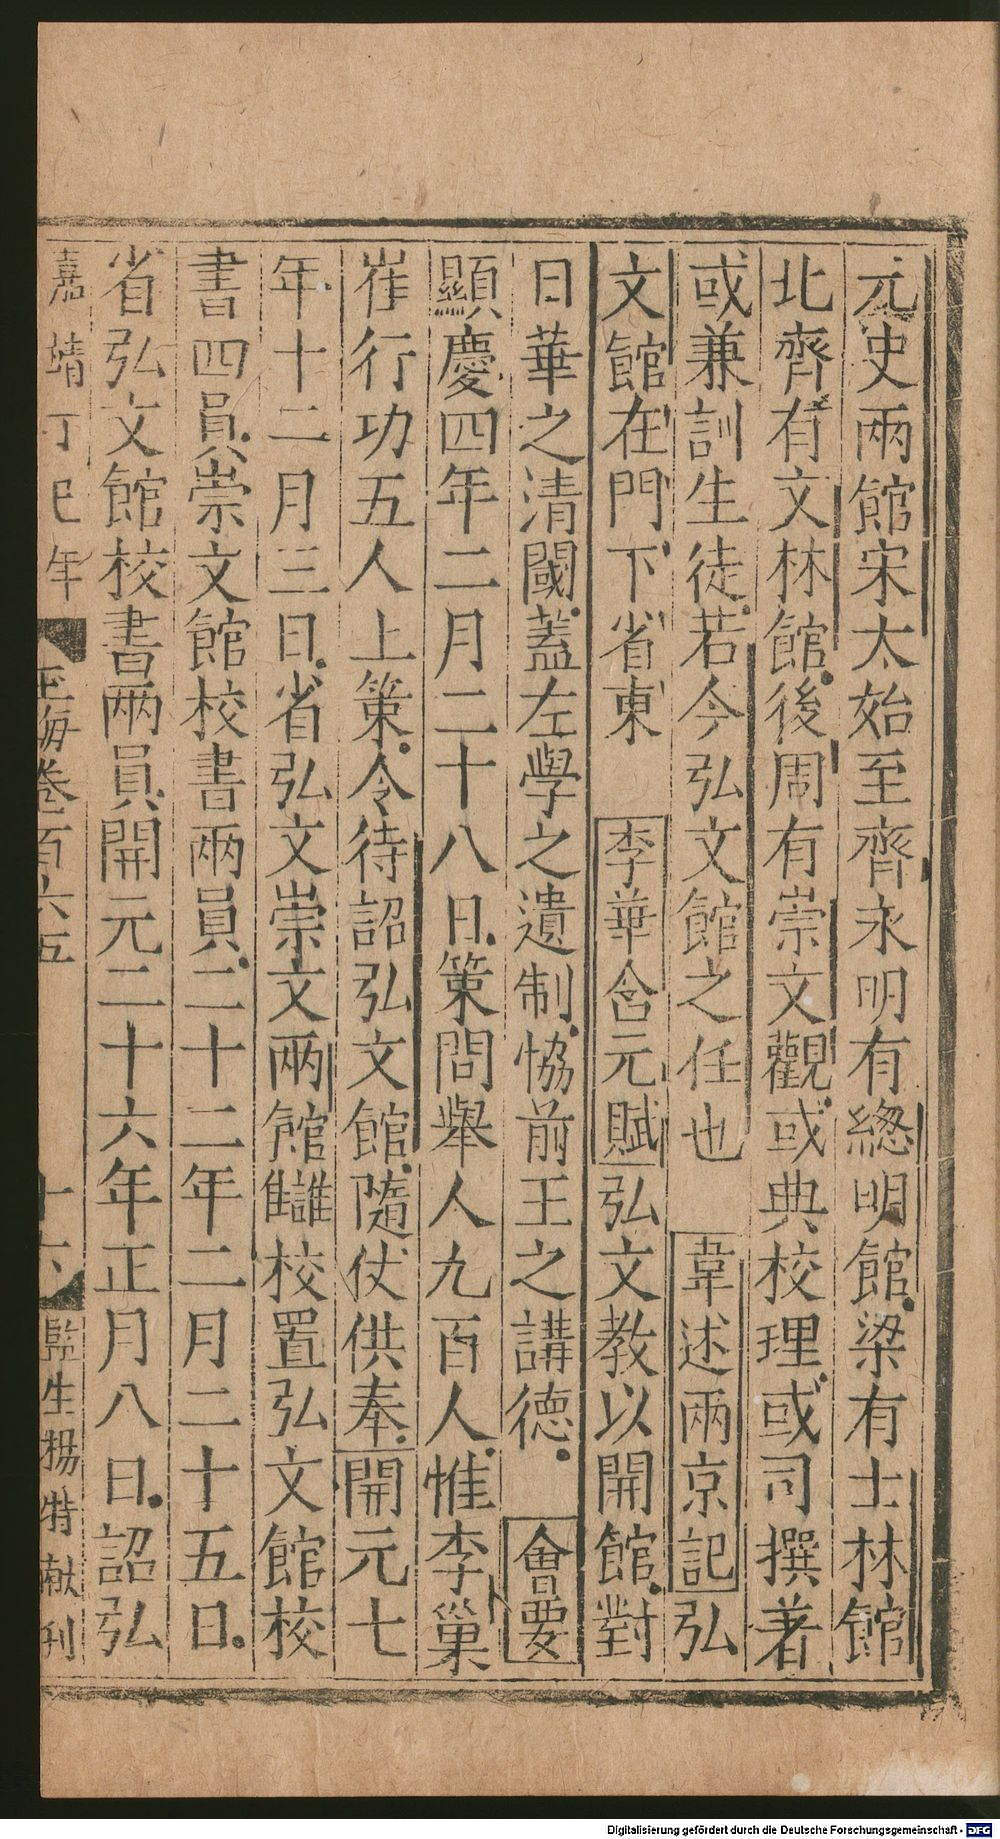 元史兩館宋太始至齊永明有總明館梁有士林館
北齊有文林館後周有崇文觀或典校理或司撰著
或兼訓生徒若今弘文館之任也 韋述兩京記 弘
文館在門下省東 李華含元賦 弘文教以開館對
日華之清閟蓋左學之遺制協前王之講德 會要
顯慶四年二月二十八日策問舉人九百人惟李巢
崔行功五人上策令待詔弘文館隨仗供奉開元七
年十二月三日省弘文崇文兩館讎校置弘文館校
書四員崇文館校書兩員二十二年二月二十五日
省弘文館校書兩員開元二十六年正月八日詔弘
嘉靖丁巳年 玉海卷百六五 十六 監生楊特献刊
Digitalisierung gefördert durch die Deutsche Forschungsgemeinschaft - DFG